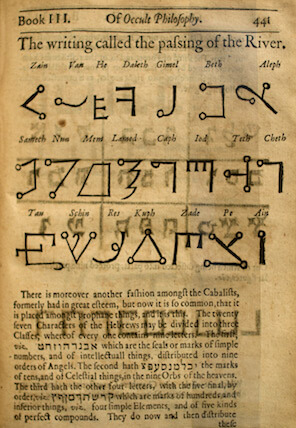 Book III. Of Occult Philosophy. 441
The writing called the passing of the River.
Zain Vau He Daleth Gimel Beth Aleph
Samech Nun Mem Lamed Caph Iod Teth Cheth
Tau Schin Res Kuph Zade Pe Ain
There is moreover another fashion amongst the Cabalists,
formerly had in great esteem, but now it is so common, that it
is placed amongst prophane things, and is this. The twenty
seven Characters of the Hebrews may be divided into three
Classes, whereof every one contains nine letters. The first,
viz. אבגדהוזחט which are the seals or marks of simple
numbers, and of intellectuall things, distributed into nine
orders of Angels. The second hath יכלמנסעפצ the marks
of tens, and of Celestial things, in the nine Orbs of the heavens.
The third hath the other four letters, with the five final, by
order, viz. which are marks of hundreds, and
inferior things, viz. four simple Elements, and of five kinds
of perfect compounds. They do now and then distribute
these